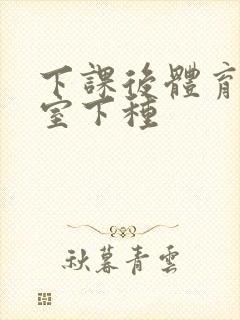 下課後體育
室下種
秋暮青雲